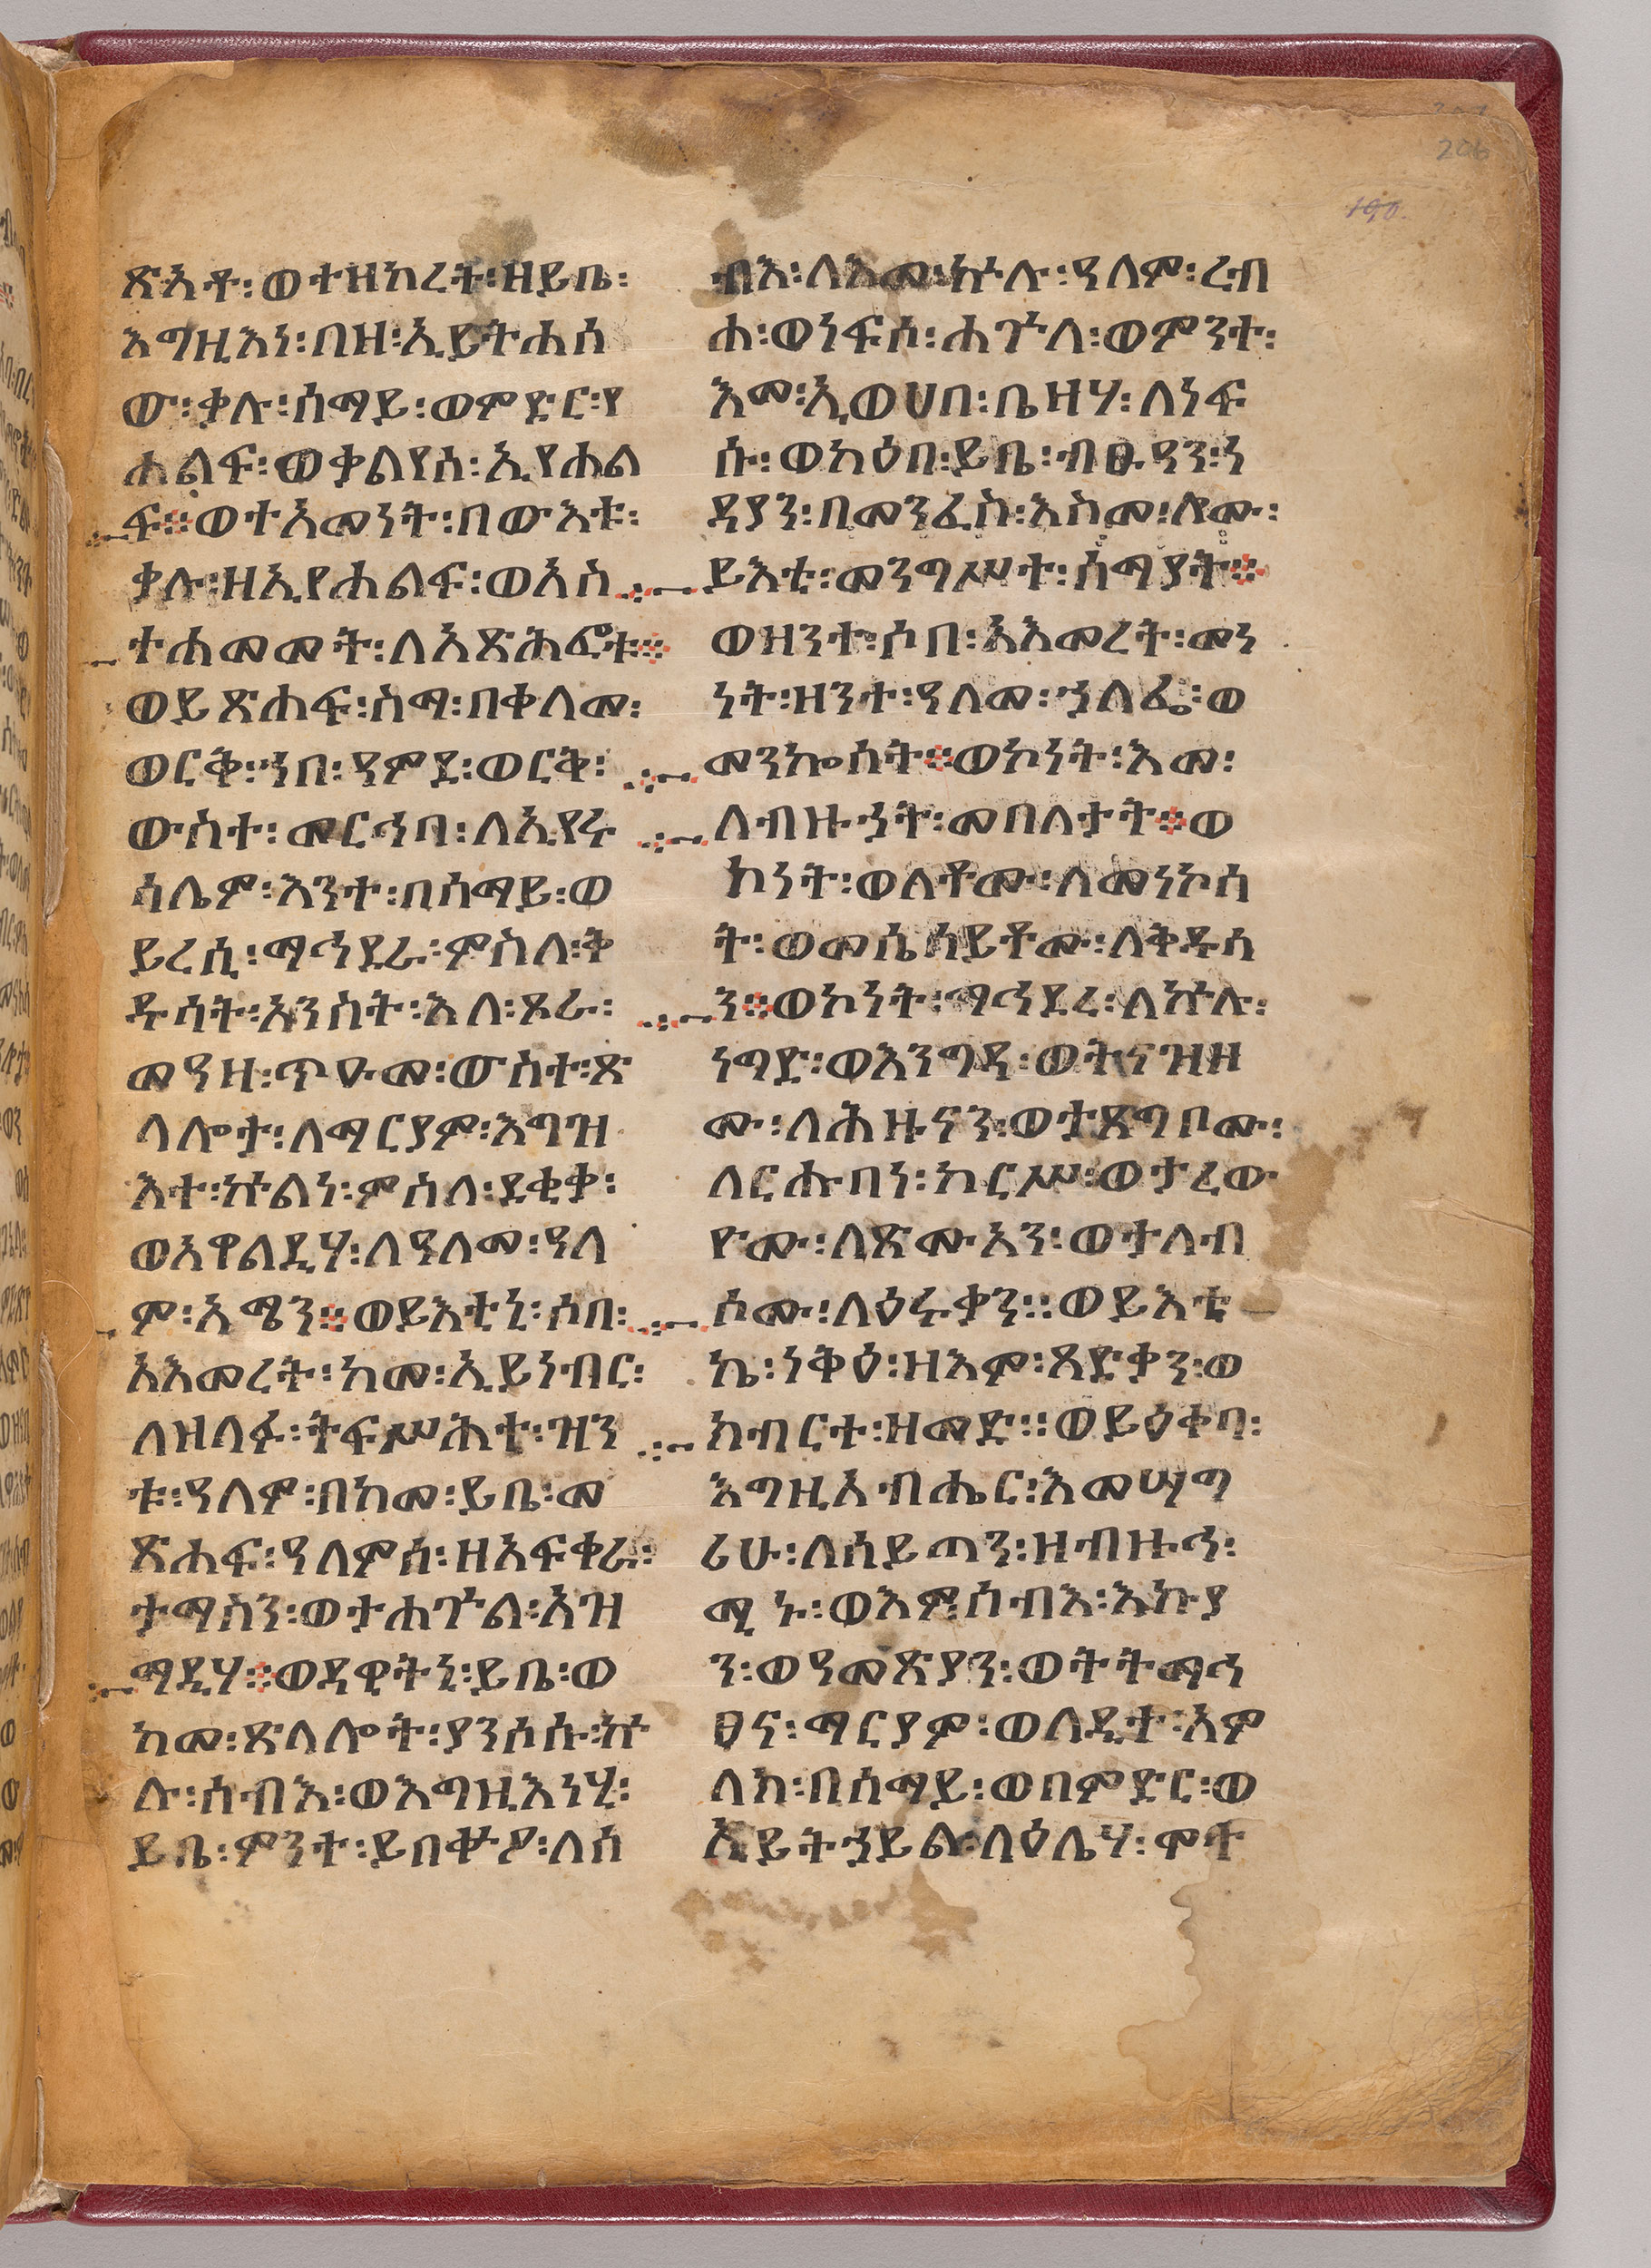 206
190
ጽሕቶ፡ወተዘከረት፡ዘይቤ፡
እግዚእነ፡በዘ፡ኢይትሐሰ
ው፡ቃሉ፡ሰማይ፡ወምድር፡የ
ሐልፍ፡ወቃልየሰ፡ኢየሐል
ፍ፨ወተአመነት፡በውእቱ፡
ቃሉ፡ዘኢየሐልፍ፡ወአስ
ተሐመመት፡ለአጽሕፎቱ፨
ወይጽሐፍ፡ስማ፡በቀለመ፡
ወርቅ፡ኀበ፡ዓምደ፡ወርቅ፡
ውስተ፡መርኅባ፡ለኢየሩ
ሳሌም፡እንተ፡በሰማይ፡ወ
ይረሲ፡ማኅደራ፡ምስለ፡ቅ
ዱሳት፡አንስት፡እለ፡ጾራ፡
መዓዛ፡ጥዑመ፡ውስተ፡ጽ
ላሎታ፡ለማርያም፡እግዝ
እተ፡ኵልነ፡ምስለ፡ደቂቃ፡
ወአዋልዲሃ፡ለዓለመ፡ዓለ
ም፡አሜን፨ወይእቲኒ፡ሶበ፡
አእመረት፡ከመ፡ኢይነብር፡
ለዘላፉ፡ትፍሥሕቱ፡ዝን
ቱ፡ዓለም፡በከመ፡ይቤ፡መ
ጽሐፍ፡ዓለምሰ፡ዘአፍቀራ፡
ታማስን፡ወታሐጕል፡አዝ
ማዲሃ፨ወዳዊትኒ፡ይቤ፡ወ
ከመ፡ጽላሎት፡ያንሶሱ፡ኵ
ሉ፡ሰብእ፡ወእግዚእነሂ፡
ይቤ፡ምንተ፡ይበቍዖ፡ለሰ
ብእ፡ለእመ፡ኵሉ፡ዓለም፡ረብ
ሐ፡ወነፍሶ፡ሐጕለ፡ወምንተ፡
እመ፡ኢወሀበ፡ቤዛሃ፡ለነፍ
ሱ፡ወካዕበ፡ይቤ፡ብፁዓን፡ነ
ዳያን፡በመንፈስ፡እስመ፡ሎሙ፡
ይእቲ፡መንግሥተ፡ሰማያት፨
ወዝንተ፡ሶበ፡አእመረት፡መነ
ነት፡ዘንተ፡ዓለመ፡ኃላፌ፡ወ
መንኰሰት፨ወኮነት፡እመ፡
ለብዙኃት፡መበለታት፨ወ
ኮነት፡ወለቶሙ፡ለመነኮሳ
ት፡ወመሴሰይቶሙ፡ለቅዱሳ
ን፨ወኮነት፡ማኅደረ፡ለኵሉ፡
ነግድ፡ወእንግዳ፡ወትናዝዘ
ሙ፡ለሕዙናን፡ወታጸግቦሙ፡
ለርሑበነ፡ከርሥ፡ወታረው
ዮሙ፡ለጽሙአን፡ወታለብ
ሶሙ፡ለዕሩቃን፡፡ወይእቲ
ኬ፡ነቅዕ፡ዘእም፡ጻድቃን፡ወ
ክብርተ፡ዘመድ፡፡ወይዕቀባ፡
እግዚአብሔር፡እመሣግ
ሪሁ፡ለሰይጣን፡ዘብዙኅ፡
ሚኑ፡ወእም፡ሰብእ፡እኩያ
ን፡ወዓመጽያን፡ወትትማኅ
ፀና፡ማርያም፡ወላዲተ፡አም
ላክ፡በሰማይ፡ወበምድር፡ወ
ኢይትኃይል፡ለዕሌሃ፡ሞተ